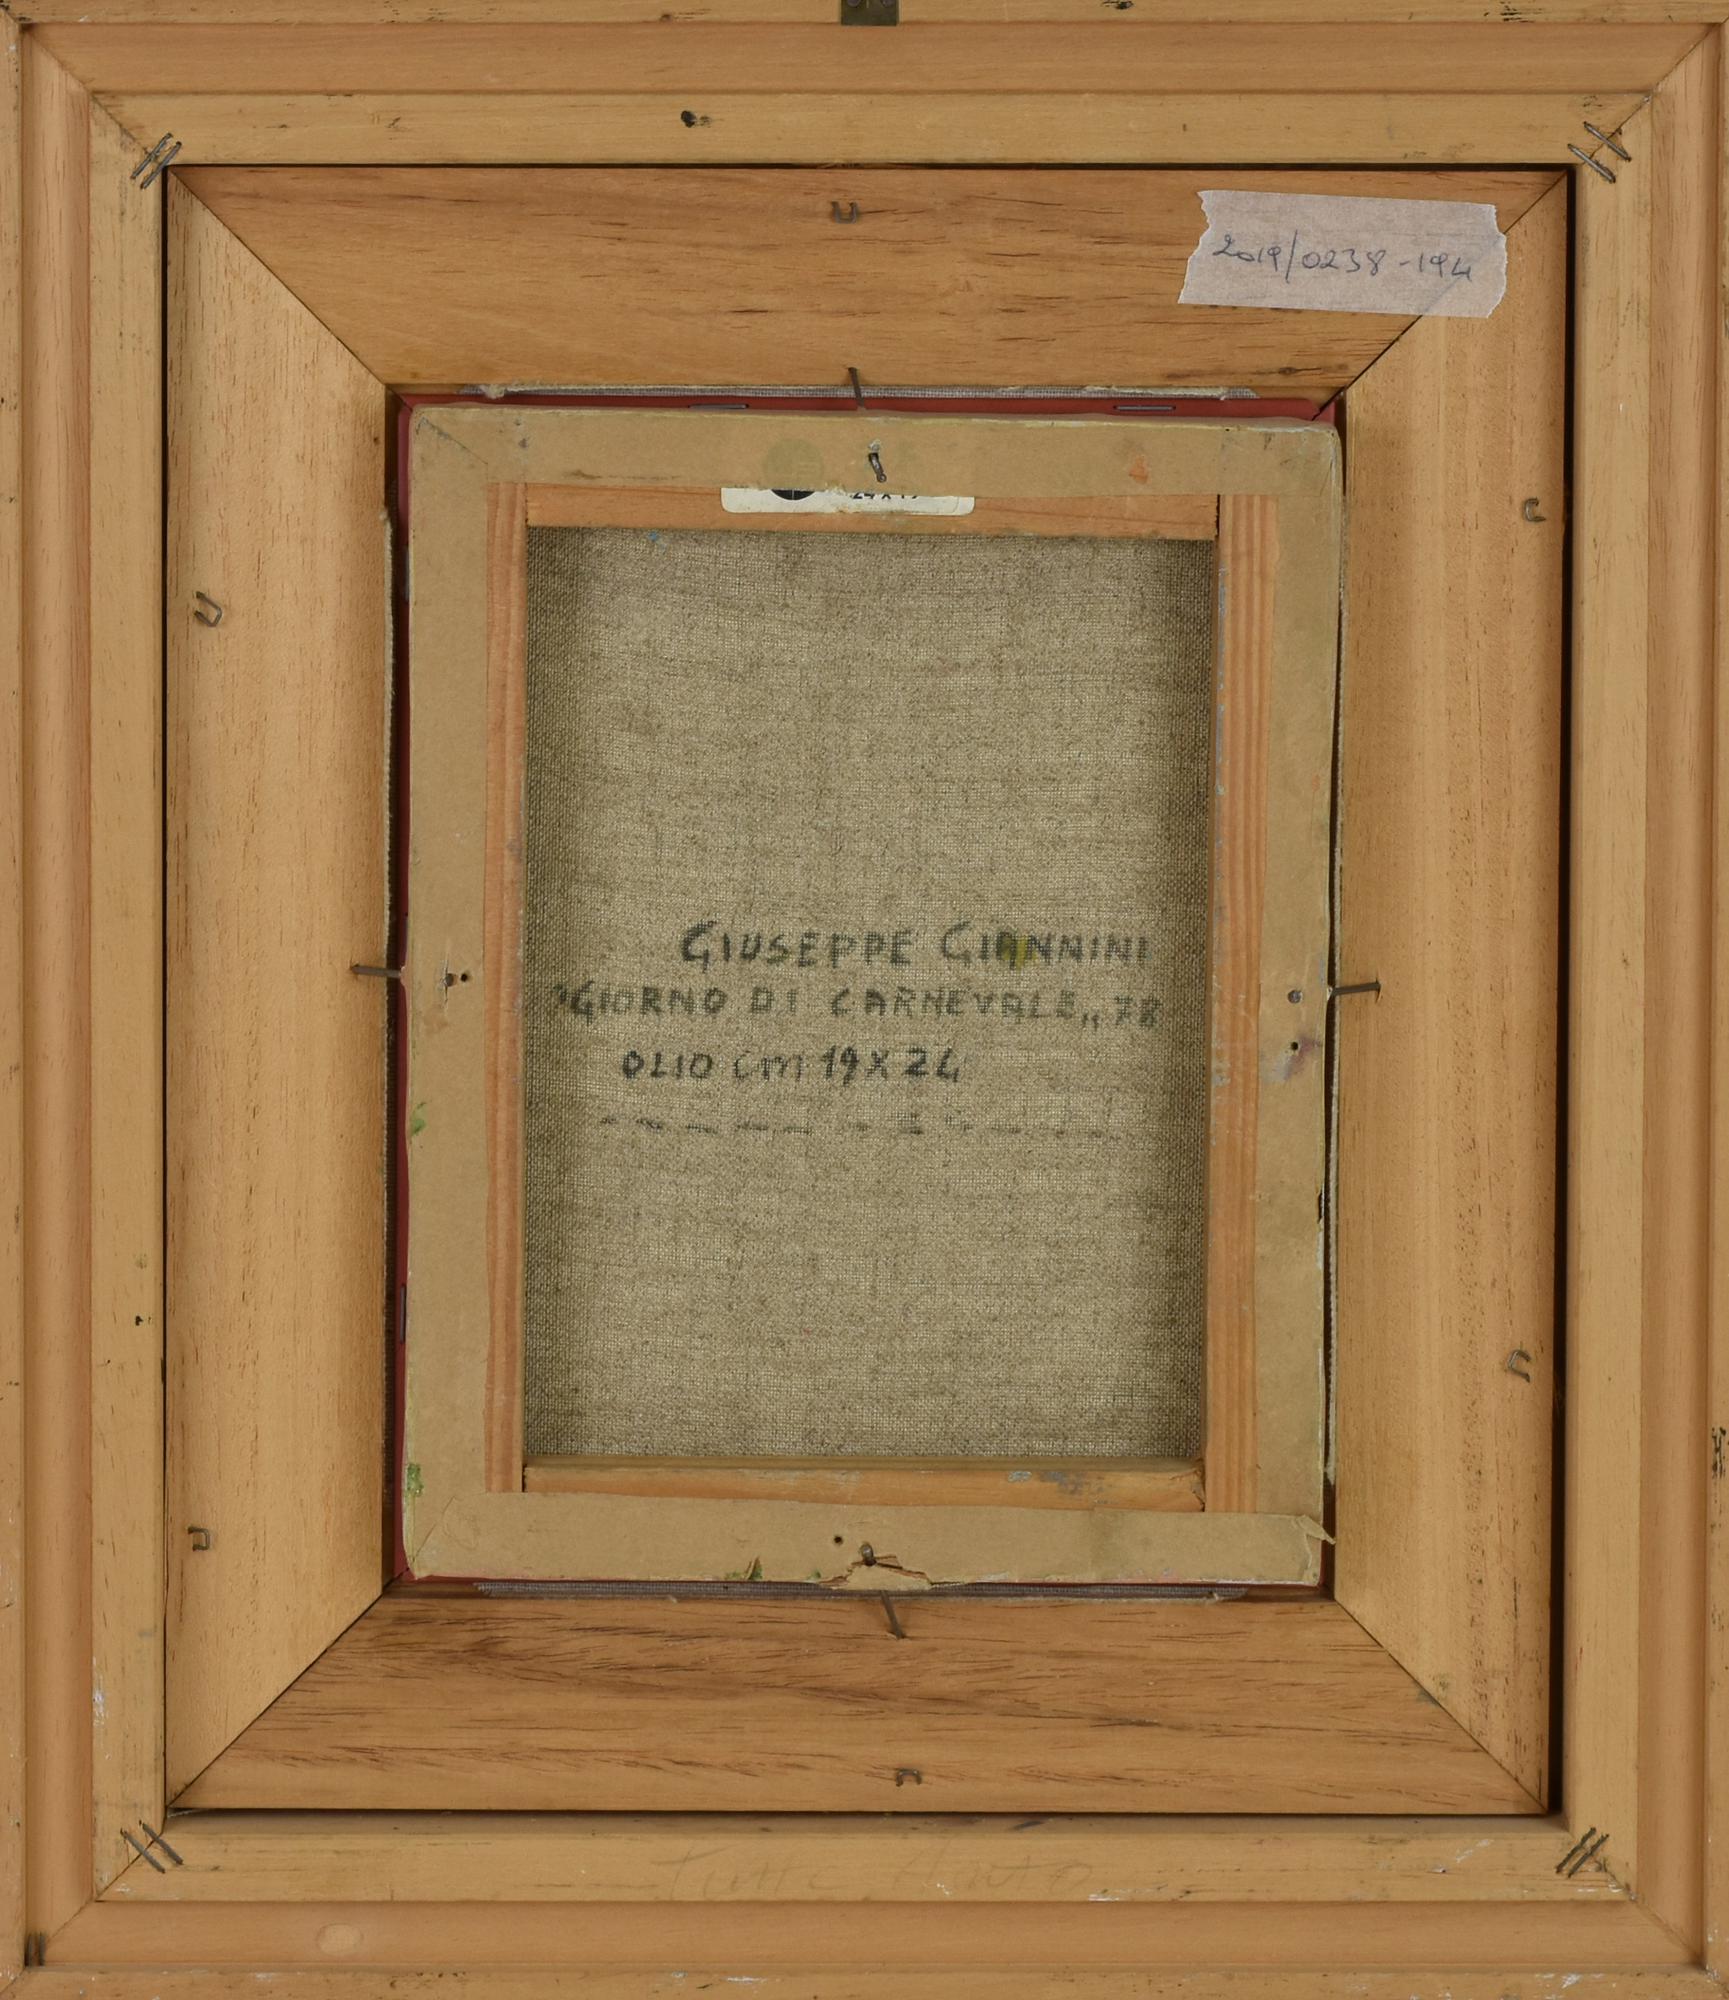 2019/0238-194
24 x 19
GIUSEPPE GIANNINI
"GIORNO DI CARNEVALE,, 78
OLIO cm 19X24